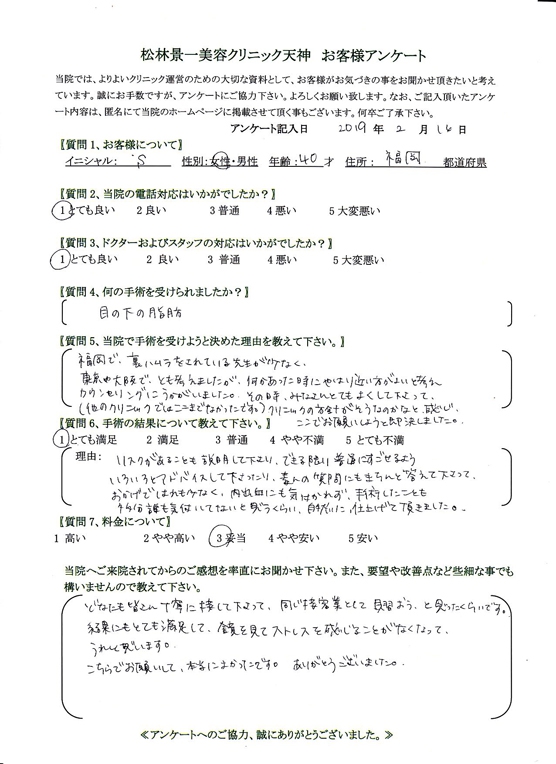 松林景一美容クリニック天神　お客様アンケート
当院では、よりよいクリニック運営のための大切な資料として、お客様がお気づきの事をお聞かせ頂きたいと考え
ています。誠にお手数ですが、アンケートにご協力下さい。よろしくお願い致します。なお、ご記入頂いたアンケ
ート内容は、匿名にて当院のホームページに掲載させて頂く事もございます。何卒ご了承下さい。
アンケート記入日　2019 年 2 月 16 日
〖質問 1、お客様について〗
イニシャル： S　性別：女性・男性　年齢：40 才　住所： 福岡 都道府県
〖質問 2、当院の電話対応はいかがでしたか？〗
1 とても良い　2 良い　3 普通　4 悪い　5 大変悪い
〖質問 3、ドクターおよびスタッフの対応はいかがでしたか？〗
1 とても良い　2 良い　3 普通　4 悪い　5 大変悪い
〖質問 4、何の手術を受けられましたか？〗
目の下の脂肪
〖質問 5、当院で手術を受けようと決めた理由を教えて下さい。〗
福岡で、裏ハムラをされている先生が少なく、
東京や大阪で、とも考えましたが、何かあった時にやはり近い方がよいと考え
カウンセリングにうかがいました。その時、みなさんとてもよくして下さって、
(他のクリニックではここまでなかったです。) クリニックの方針がそうなのかなと、感じ、
ここでお願いしようと即決しました。
〖質問 6、手術の結果について教えて下さい。〗
1 とても満足　2 満足　3 普通　4 やや不満　5 とても不満
理由：　リスクがあることも説明して下さり、できる限り普通にすごせるよう
いろいろとアドバイスして下さったり、素人の質問にもきちんと答えて下さって、
おかげではれも少なく、内出血にも気付かれず、手術したことも
誰も気付いてないと思うくらい、自然に仕上げて頂きました。
〖質問 7、料金について〗
1 高い　2 やや高い　3 妥当　4 やや安い　5 安い
当院へご来院されてからのご感想を率直にお聞かせ下さい。また、要望や改善点など些細な事でも
構いませんので教えて下さい。
どなたも皆さん丁寧に接して下さって、同じ接客業として見習おう、と思ったくらいです。
結果にもとても満足して、鏡を見てストレスを感じることがなくなって、
うれしく思います。
こちらでお願いして、本当によかったです。ありがとうございました。
≪アンケートへのご協力、誠にありがとうございました。≫